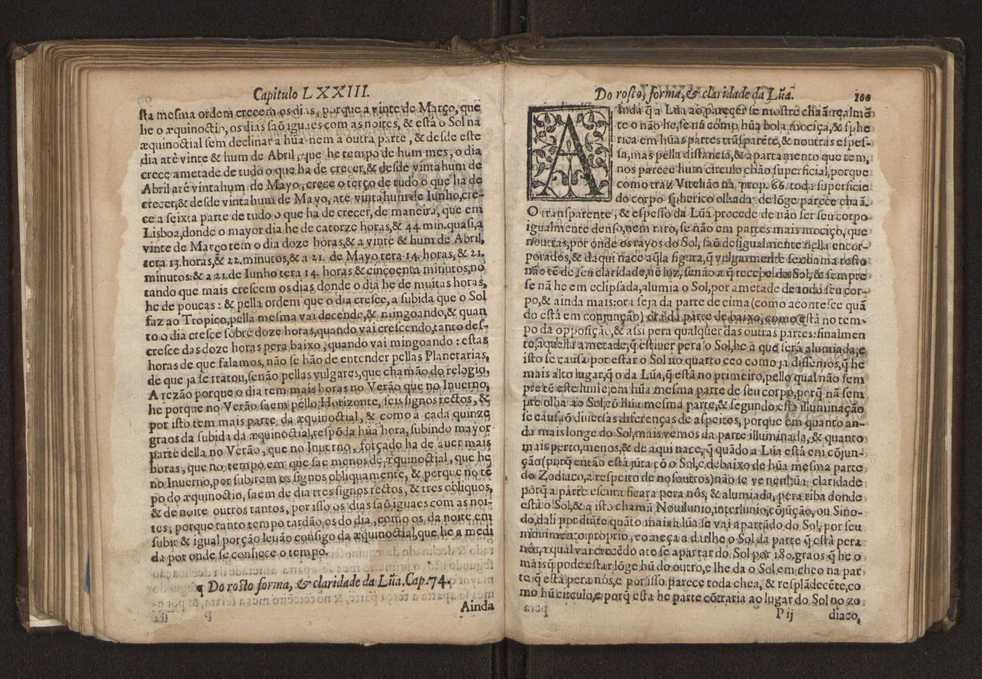 Capitulo LXXIII.
sta mesma ordem crecem os dias, porque a vinte de Março, que
he o æquinoctio, os dias saõ iguaes com as noites, & està o Sol na
æquinoctial sem declinar a hũa nem a outra parte, & desde este
dia atè vinte & hum de Abril, que he tempo de hum mes, o dia
crece ametade de tudo o que ha de crecer, & desde vinta hum de
Abril atè vinta hum de Mayo, crece o terço de tudo o que ha de
crecer, & desde vinta hum de Mayo, atè vinta hum de Iunho, cre-
ce a seixta parte de tudo o que ha de crecer, de maneira, que em
Lisboa, donde o mayor dia he de catorze horas, & 44. min. quasi, a
vinte de Março tem o dia doze horas, & a vinte & hum de Abril,
tera 13. horas, & 22. minutos, & a 21. de Mayo tera 14. horas, & 21.
minutos: & a 21. de Iunho tera 14. horas & cincoenta minutos, no
tando que mais crescem os dias, donde o dia he de muitas horas,
he de poucas: & pella ordem que o dia cresce, a subida que o Sol
faz ao Tropico, pella mesma vai decendo, & mingoando, & quan
to o dia cresce sobre doze horas, quando vai crescendo, tanto des-
cresce das doze horas pera baixo, quando vai mingoando: estas
horas de que falamos, não se hão de entender pellas Planetarias,
de que ja se tratou, senão pellas vulgares, que chamão do relogio,
A rezão porque o dia tem mais horas no Verão que no Inverno,
he porque no Verão saem pello Horizonte, seis signos rectos, &
por isto tem mais parte da æquinoctial, & como a cada quinze
graos da subida da æquinoctial, respõda hũa hora, subindo mayor
parte della no Verão, que no Inverno, forçado ha de auer mais
horas, que no tempo em que sae menos de æquinoctial, que he
no Inverno, por subirem os signos obliquamente, & porque no tẽ
po do æquinoctio, saem de dia tres signos rectos, & tres obliquos,
& de noite outros tantos, por isso os dias saõ iguaes com as noi-
tes; porque tanto tempo tardão, os do dia, como os da noite em
subir & igual porção leuão consigo da æquinoctial, que he a medi
da por onde se conhece o tempo.
¶ Do rosto forma, & claridade da Lũa. Cap. 74.
Ainda
Do rosto, forma, & claridade da Lũa. 100
AInda q̃ a Lũa ao parecer se mostre chaã, realmẽ
te o não he, se nã como hũa bola mociça, & sphe
rica em hũas partes trãsparẽte, & noutras espes-
sa, mas pella distancia, & apartamento que tem,
nos parece hum circulo chão superficial, porque
como traz Vitelião na prop. 66. toda superficie
do corpo spherico olhada de lõge parece chaã.
O transparente, & espesso da Lũa procede de não ser seu corpo
igualmente denso, nem raro, se não em partes mais mociço, que
noutras, por onde os rayos do Sol, saõ desigualmente nella encor-
porados, & daqui nace aq̃lla figura, q̃ vulgarmente se chama rosto
não tẽ de seu claridade, nẽ luz, senão a q̃ recebe do Sol, & sempre
se nã he em eclipsada, alumia o Sol, por ametade de todo seu cor-
po, & ainda maisː ora seja da parte de cima (como acontece quã
do està em conjunção) ora da parte de baixo, como està no tem-
po da opposição, & assi pera qualquer das outras partes: finalmen
te, aquella ametade, q̃ estiuer pera o Sol, he a que serà alumiada, e
isto se causa por estar o Sol no quarto ceo como ja dissemos, q̃ he
mais alto lugar, q̃ o da Lũa, q̃ està no primeiro, pello qual não sem
pre tẽ este lume em hũa mesma parte de seu corpo, porq̃ nã sem
pre olha ao Sol, cõ hũa mesma parte, & segundo esta illuminação
se causaõ diuersas differenças de aspeitos, porque em quanto an-
da mais longe do Sol, mais vemos da parte illuminada, & quanto
mais perto, menos, & de aqui nace, q̃ quãdo a Lũa està em cõjun-
ção (porq̃ então està jũta cõ o Sol, e debaixo de hũa mesma parte
do Zodiaco, a respeito de nos outros) não se ve nenhũa claridade
porq̃ a parte escura ficara pera nòs, & alumiada, pera riba donde
està o Sol, & a isto chamã Nouilunio, interlunio, cõjũção, ou Sino-
do, dali por diãte quãto mais a lũa se vai apartãdo do Sol, por seu
mouimento proprio, começa a darlhe o Sol da parte q̃ està pera
nós, a qual vai crecẽdo atè se apartar do Sol por 180. graos q̃ he o
mais q̃ pode estar lõge hũ do outro, e lhe da o Sol em cheo na par
te q̃ està pera nòs, e por isso parece toda chea, & resplãdecẽte, co
mo hũ circulo, e porq̃ esta he parte cõtraria ao lugar do Sol no zo
P ij diaco,